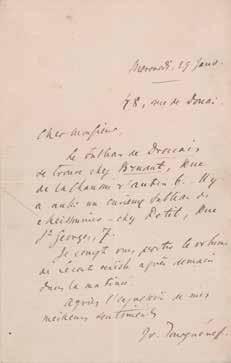 Mercredi, 29 Janv.
48, rue de Douai.
Cher Monsieur,
Le tableau de
se trouve chez Rue
de la Chaussée d'Antin 6. Il y
a aussi un curieux tableau de
chez Rue
St Georges, 7.
Je compte vous porter le
de après demain
dans la matinée.
Agréez l'expression de mes
meilleurs sentiments
Iv. Tourguéneff